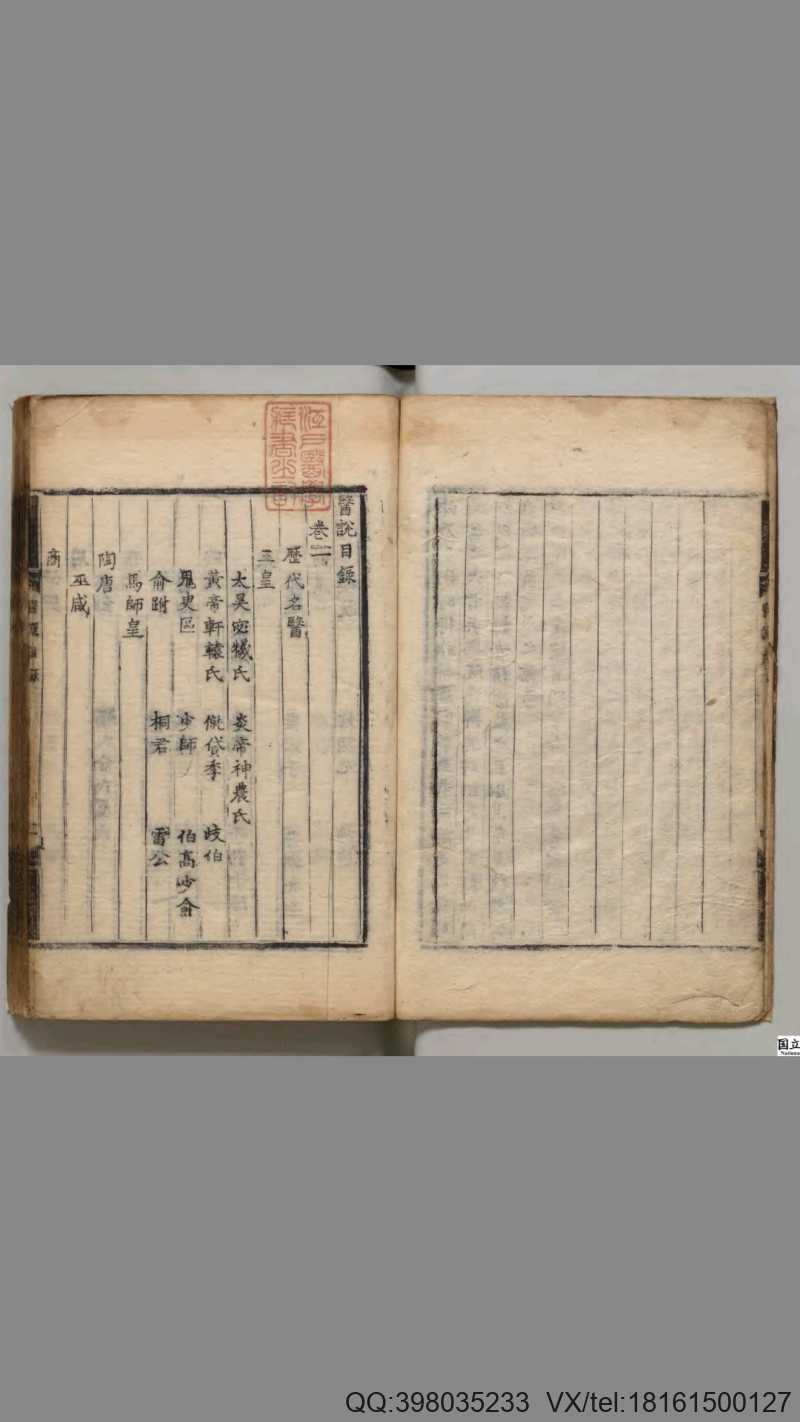 醫說目録
卷一
歷代名醫
三皇
太昊宓犧氏 炎帝神農氏
黃帝軒轅氏 僦貸季 岐伯
鬼史區 少師 伯高 少俞
俞跗 桐君 雷公
馬師皇
陶唐
巫咸
商
江戶醫學
藏書之記
国立
National
QQ:398035233 VX/tel:18161500127